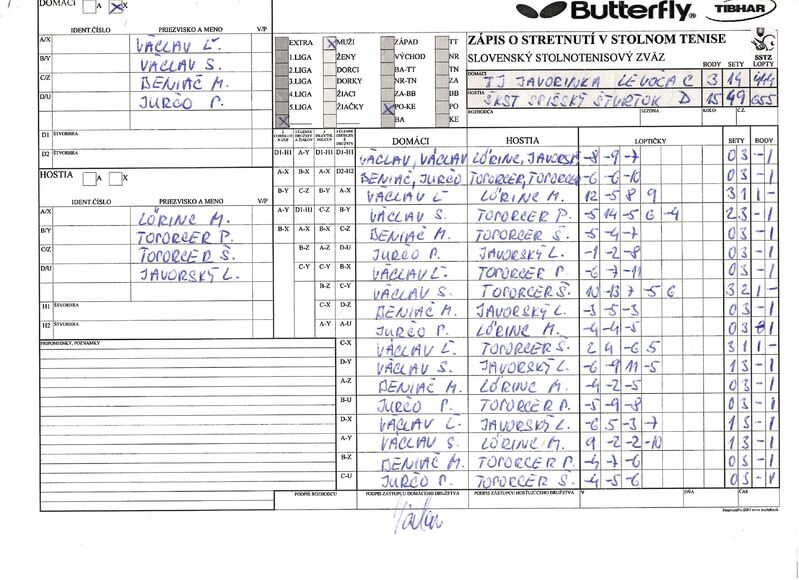 DOMÁCI A X
IDENT.ČÍSLO PRIEZVISKO A MENO V/P
A/X VÁCLAV Ľ.
B/Y VÁCLAV S.
C/Z DENIAČ M.
D/U JURČO P.
D1 ŠTVORHRA
D2 ŠTVORHRA
HOSTIA A X
IDENT.ČÍSLO PRIEZVISKO A MENO V/P
A/X LŐRINC M.
B/Y TOPORCER P.
C/Z TOPORCER Š.
D/U JAVORSKÝ L.
H1 ŠTVORHRA
H2 ŠTVORHRA
PRIPOMIENKY, POZNÁMKY
EXTRA X MUŽI ZÁPAD TT
1.LIGA ŽENY VÝCHOD NR
2.LIGA DORCI BA-TT TN
3.LIGA DORKY NR-TN ZA
4.LIGA ŽIACI ZA-BB BB
5.LIGA ŽIAČKY X PO-KE PO
X BA KE
Butterfly TIBHAR
ZÁPIS O STRETNUTÍ V STOLNOM TENISE
SLOVENSKÝ STOLNOTENISOVÝ ZVÄZ
BODY SETY LOPTY
SSTZ
DOMÁCI TJ JAVORINKA LEVOČA C 3 14
HOSTIA ŠKST SPIŠSKÝ ŠTVRTOK D 15 49 655
ROZHODCA SEZÓNA KOLO Č.Z.
DOMÁCI HOSTIA LOPTIČKY SETY BODY
D1-H1 A-Y D1-H1 D1-H1 VÁCLAV, VÁCLAV LŐRINC, JAVORSK -8 -9 -7 0 3 -1
A-X B-X A-X D2-H2 DENIAČ, JURČO TOPORCER, TOPORCER -6 -6 -10 0 3 -1
B-Y C-Z B-Y A-X VÁCLAV Ľ LŐRINC M. 12 -5 8 9 3 1 1 -
A-Y D1-H1 C-Z B-Y VÁCLAV S. TOPORCER P. -5 14 -5 6 -4 2 3 -1
B-X A-X D-U C-Z DENIAČ M. TOPORCER Š. -5 -4 -7 0 3 -1
B-Z A-Z D-U JURČO P. JAVORSKÝ L. -1 -2 -8 0 3 -1
C-Y C-Y B-X VÁCLAV Ľ. TOPORCER P. -6 -7 -11 0 3 -1
B-Z C-Y VÁCLAV S. TOPORCER Š. 10 -13 7 -5 6 3 2 1 -
C-X D-Z DENIAČ M. JAVORSKÝ L. -3 -5 -3 0 3 -1
A-Y A-U JURČO P. LŐRINC M. -4 -4 -5 0 3 1
C-X VÁCLAV Ľ. TOPORCER Š. 2 4 -6 5 3 1 1 -
D-Y VÁCLAV S. JAVORSKÝ L. -6 -9 11 -5 1 3 -1
A-Z DENIAČ M. LŐRINC M. -4 -2 -5 0 3 -1
B-U JURČO P. TOPORCER P. -5 -9 -8 0 3 -1
D-X VÁCLAV Ľ. JAVORSKÝ L. -6 5 -3 -7 1 3 -1
A-Y VÁCLAV S. LŐRINC M. 9 -2 -2 -10 1 3 -1
B-Z DENIAČ M. TOPORCER P. -4 -7 -6 0 3 -1
C-U JURČO P. TOPORCER Š. -4 -5 -6 0 3 -1
PODPIS ROZHODCU PODPIS ZÁSTUPCU DOMÁCEHO DRUŽSTVA PODPIS ZÁSTUPCU HOSŤUJÚCEHO DRUŽSTVA V DŇA ČAS